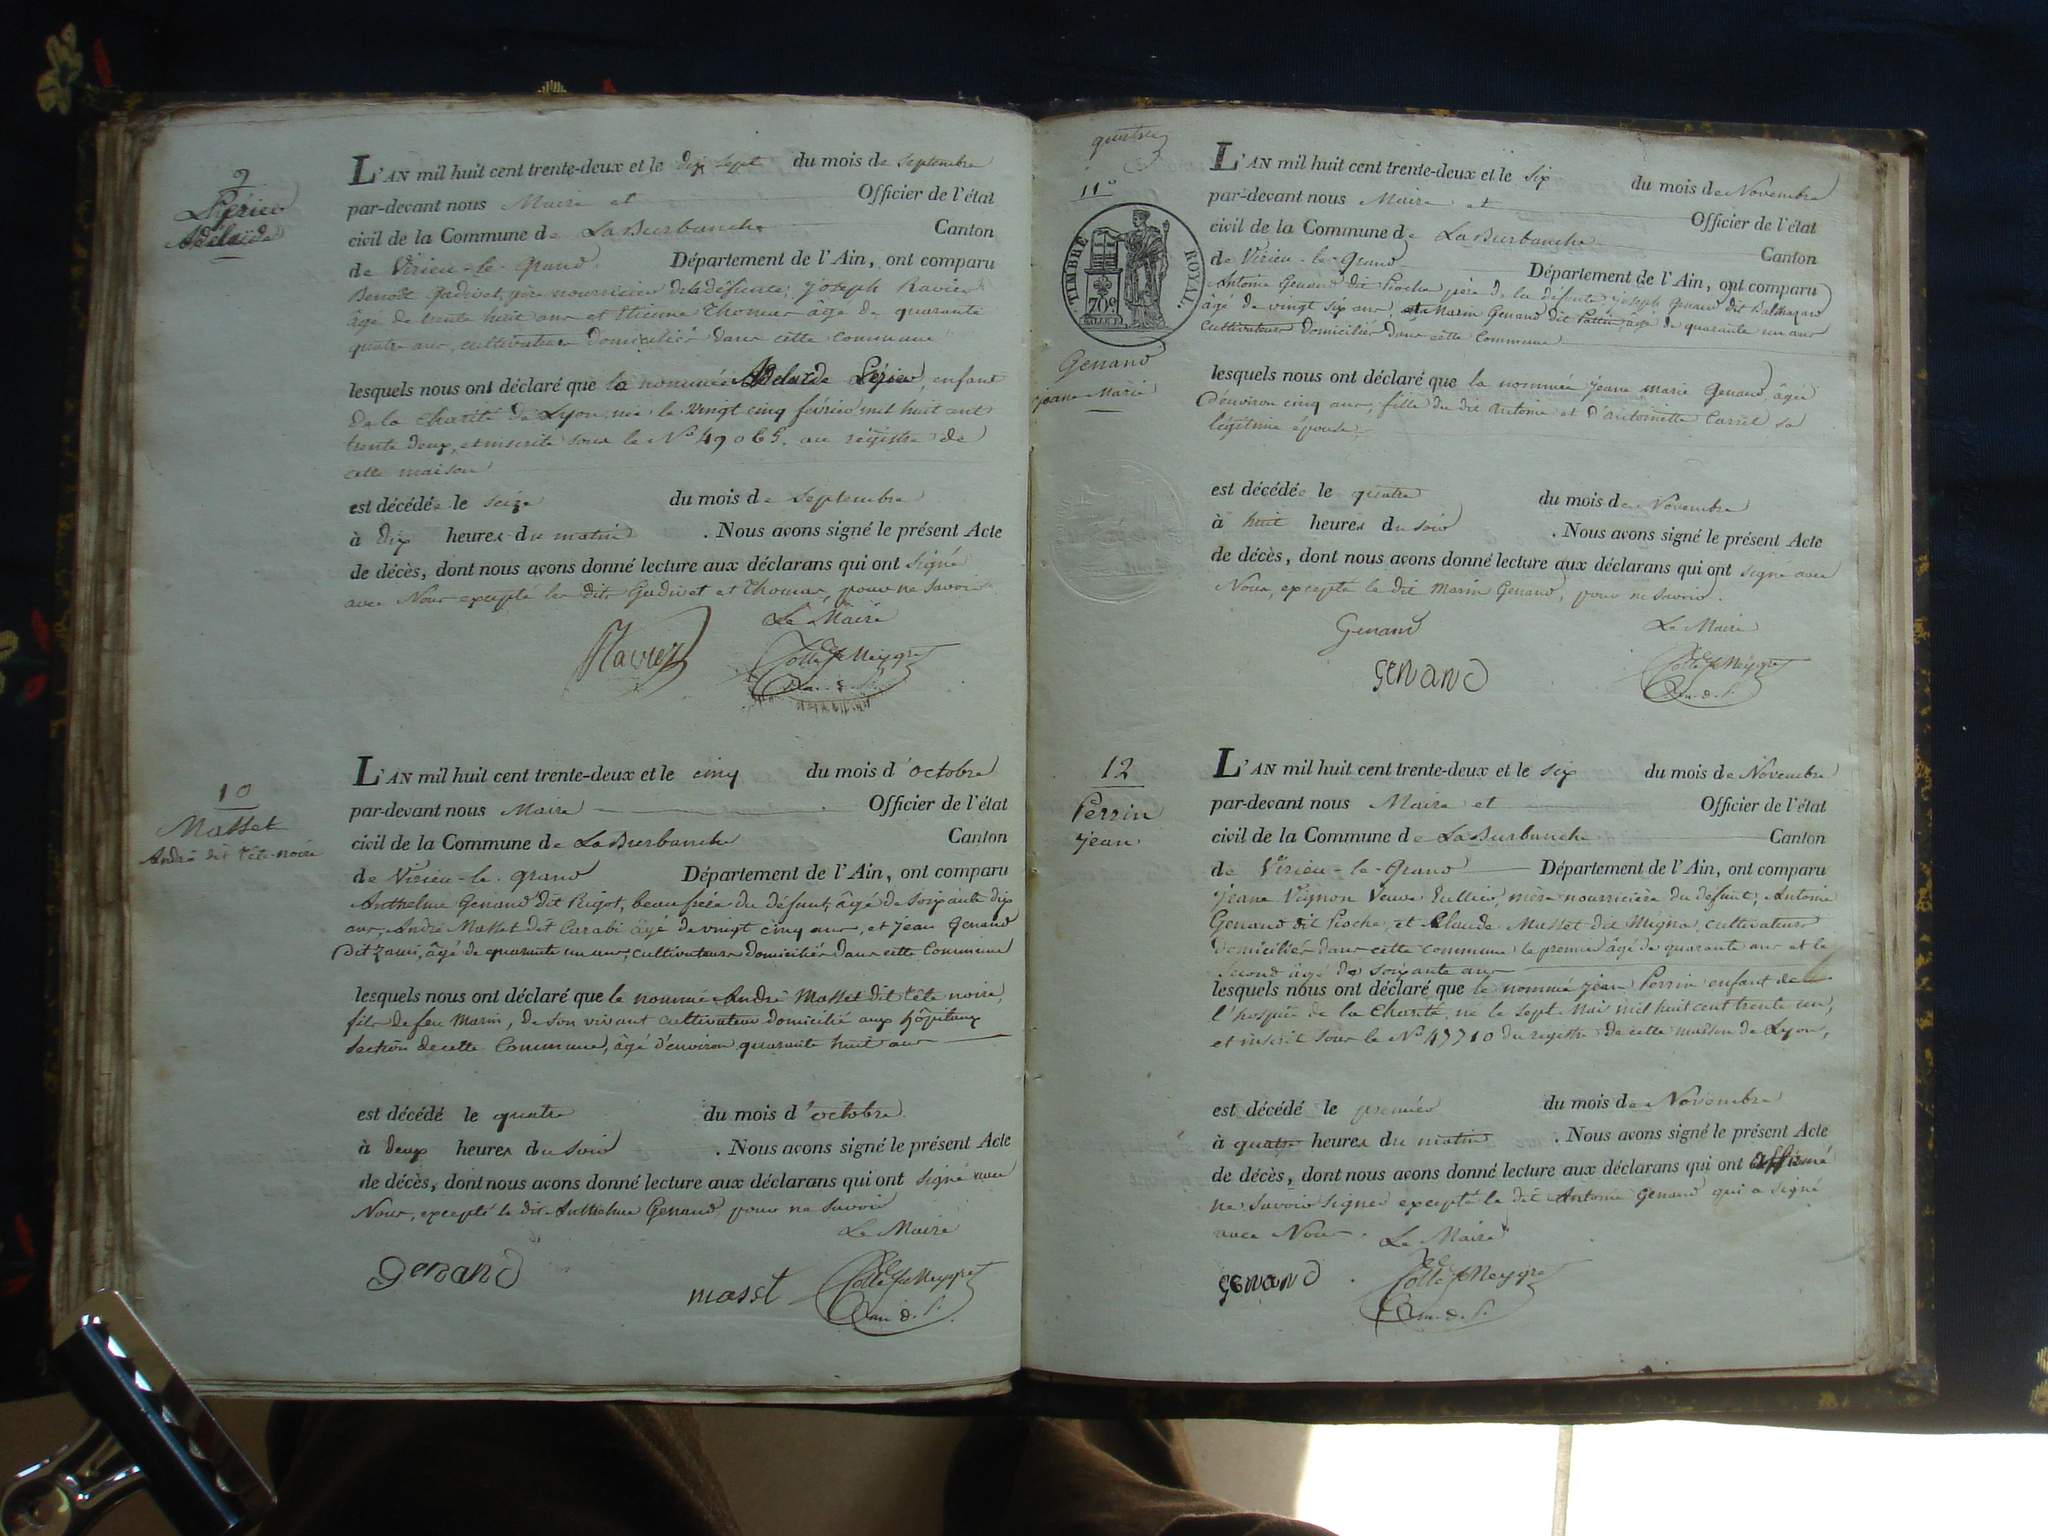 9
Adelaïde
L'AN mil huit cent trente-deux et le dix sept du mois de Septembre
par-devant nous Maire et Officier de l'état
civil de la Commune de La Burbanche Canton
de Virieu-le-grand Département de l'Ain, ont comparu
Benoit Gudivet, père nourricier de la défunte; Joseph Ravier
âgé de trente huit ans et Etienne Thomas âgé de quarante
quatre ans, cultivateurs domiciliés dans cette commune
lesquels nous ont déclaré que la nommée Adelaïde enfant
de la Charité de Lyon, née le vingt cinq février mil huit cent
trente deux, et inscrite sous le N° 49065. au régistre de
cette maison
est décédée le seize du mois de Septembre
à dix heures du matin . Nous avons signé le présent Acte
de décès, dont nous avons donné lecture aux déclarans qui ont signé
avec Nous excepté les dits Gudivet et Thomas, pour ne savoir
Le Maire
Ravier
10
Masset
André dit tête-noire
L'AN mil huit cent trente-deux et le cinq du mois d'octobre
par-devant nous Maire Officier de l'état
civil de la Commune de La Burbanche Canton
de Virieu-le-grand Département de l'Ain, ont comparu
Anthelme Genand dit Rigot, beau frère du défunt, âgé de soixante dix
ans, André Masset dit Carabi âgé de vingt cinq ans, et Jean Genand
dit Zami, âgé de quarante un ans, cultivateurs domiciliés dans cette Commune
lesquels nous ont déclaré que le nommé André Masset dit tête noire,
fils de feu Marin, de son vivant cultivateur domicilié aux hôpitaux
section de cette Commune, âgé d'environ quarante huit ans
est décédé le quatre du mois d'octobre
à deux heures du soir . Nous avons signé le présent Acte
de décès, dont nous avons donné lecture aux déclarans qui ont signé avec
Nous, excepté le dit Anthelme Genand pour ne savoir
Le Maire
Genand
masset
11°
TIMBRE ROYAL
70c
Genand
jeane Marie
L'AN mil huit cent trente-deux et le six du mois de Novembre
par-devant nous Maire et Officier de l'état
civil de la Commune de La Burbanche Canton
de Virieu-le-Grand Département de l'Ain, ont comparu
Antoine Genand dit Pioche père de la défunte, Joseph Genand dit Balthazard
âgé de vingt six ans, et Marin Genand dit Pattin âgé de quarante un ans
cultivateurs domiciliés dans cette Commune
lesquels nous ont déclaré que la nommée Jeane Marie Genand, âgée
d'environ cinq ans, fille du dit Antoine et d'Antoinette Carrel sa
légitime épouse
est décédée le quatre du mois de Novembre
à huit heures du soir . Nous avons signé le présent Acte
de décès, dont nous avons donné lecture aux déclarans qui ont signé avec
Nous, excepté le dit Marin Genand, pour ne savoir.
Genand Le Maire
Genand
12
Perrin
Jean
L'AN mil huit cent trente-deux et le six du mois de Novembre
par-devant nous Maire et Officier de l'état
civil de la Commune de La Burbanche Canton
de Virieu-le-Grand Département de l'Ain, ont comparu
Jeane Vignon Veuve mère nourricière du défunt; Antoine
Genand dit Pioche et Claude Masset dit Migno, cultivateurs
domiciliés dans cette commune le premier âgé de quarante ans et le
second âgé de soixante ans
lesquels nous ont déclaré que le nommé Jean Perrin enfant de
l'hospice de la Charité, né le sept Mai mil huit cent trente un,
et inscrit sous le N° 47710 du registre de cette maison de Lyon,
est décédé le premier du mois de Novembre
à quatre heures du matin . Nous avons signé le présent Acte
de décès, dont nous avons donné lecture aux déclarans qui ont affirmé
ne savoir signer excepté le dit Antoine Genand qui a signé
avec Nous. Le Maire
Genand